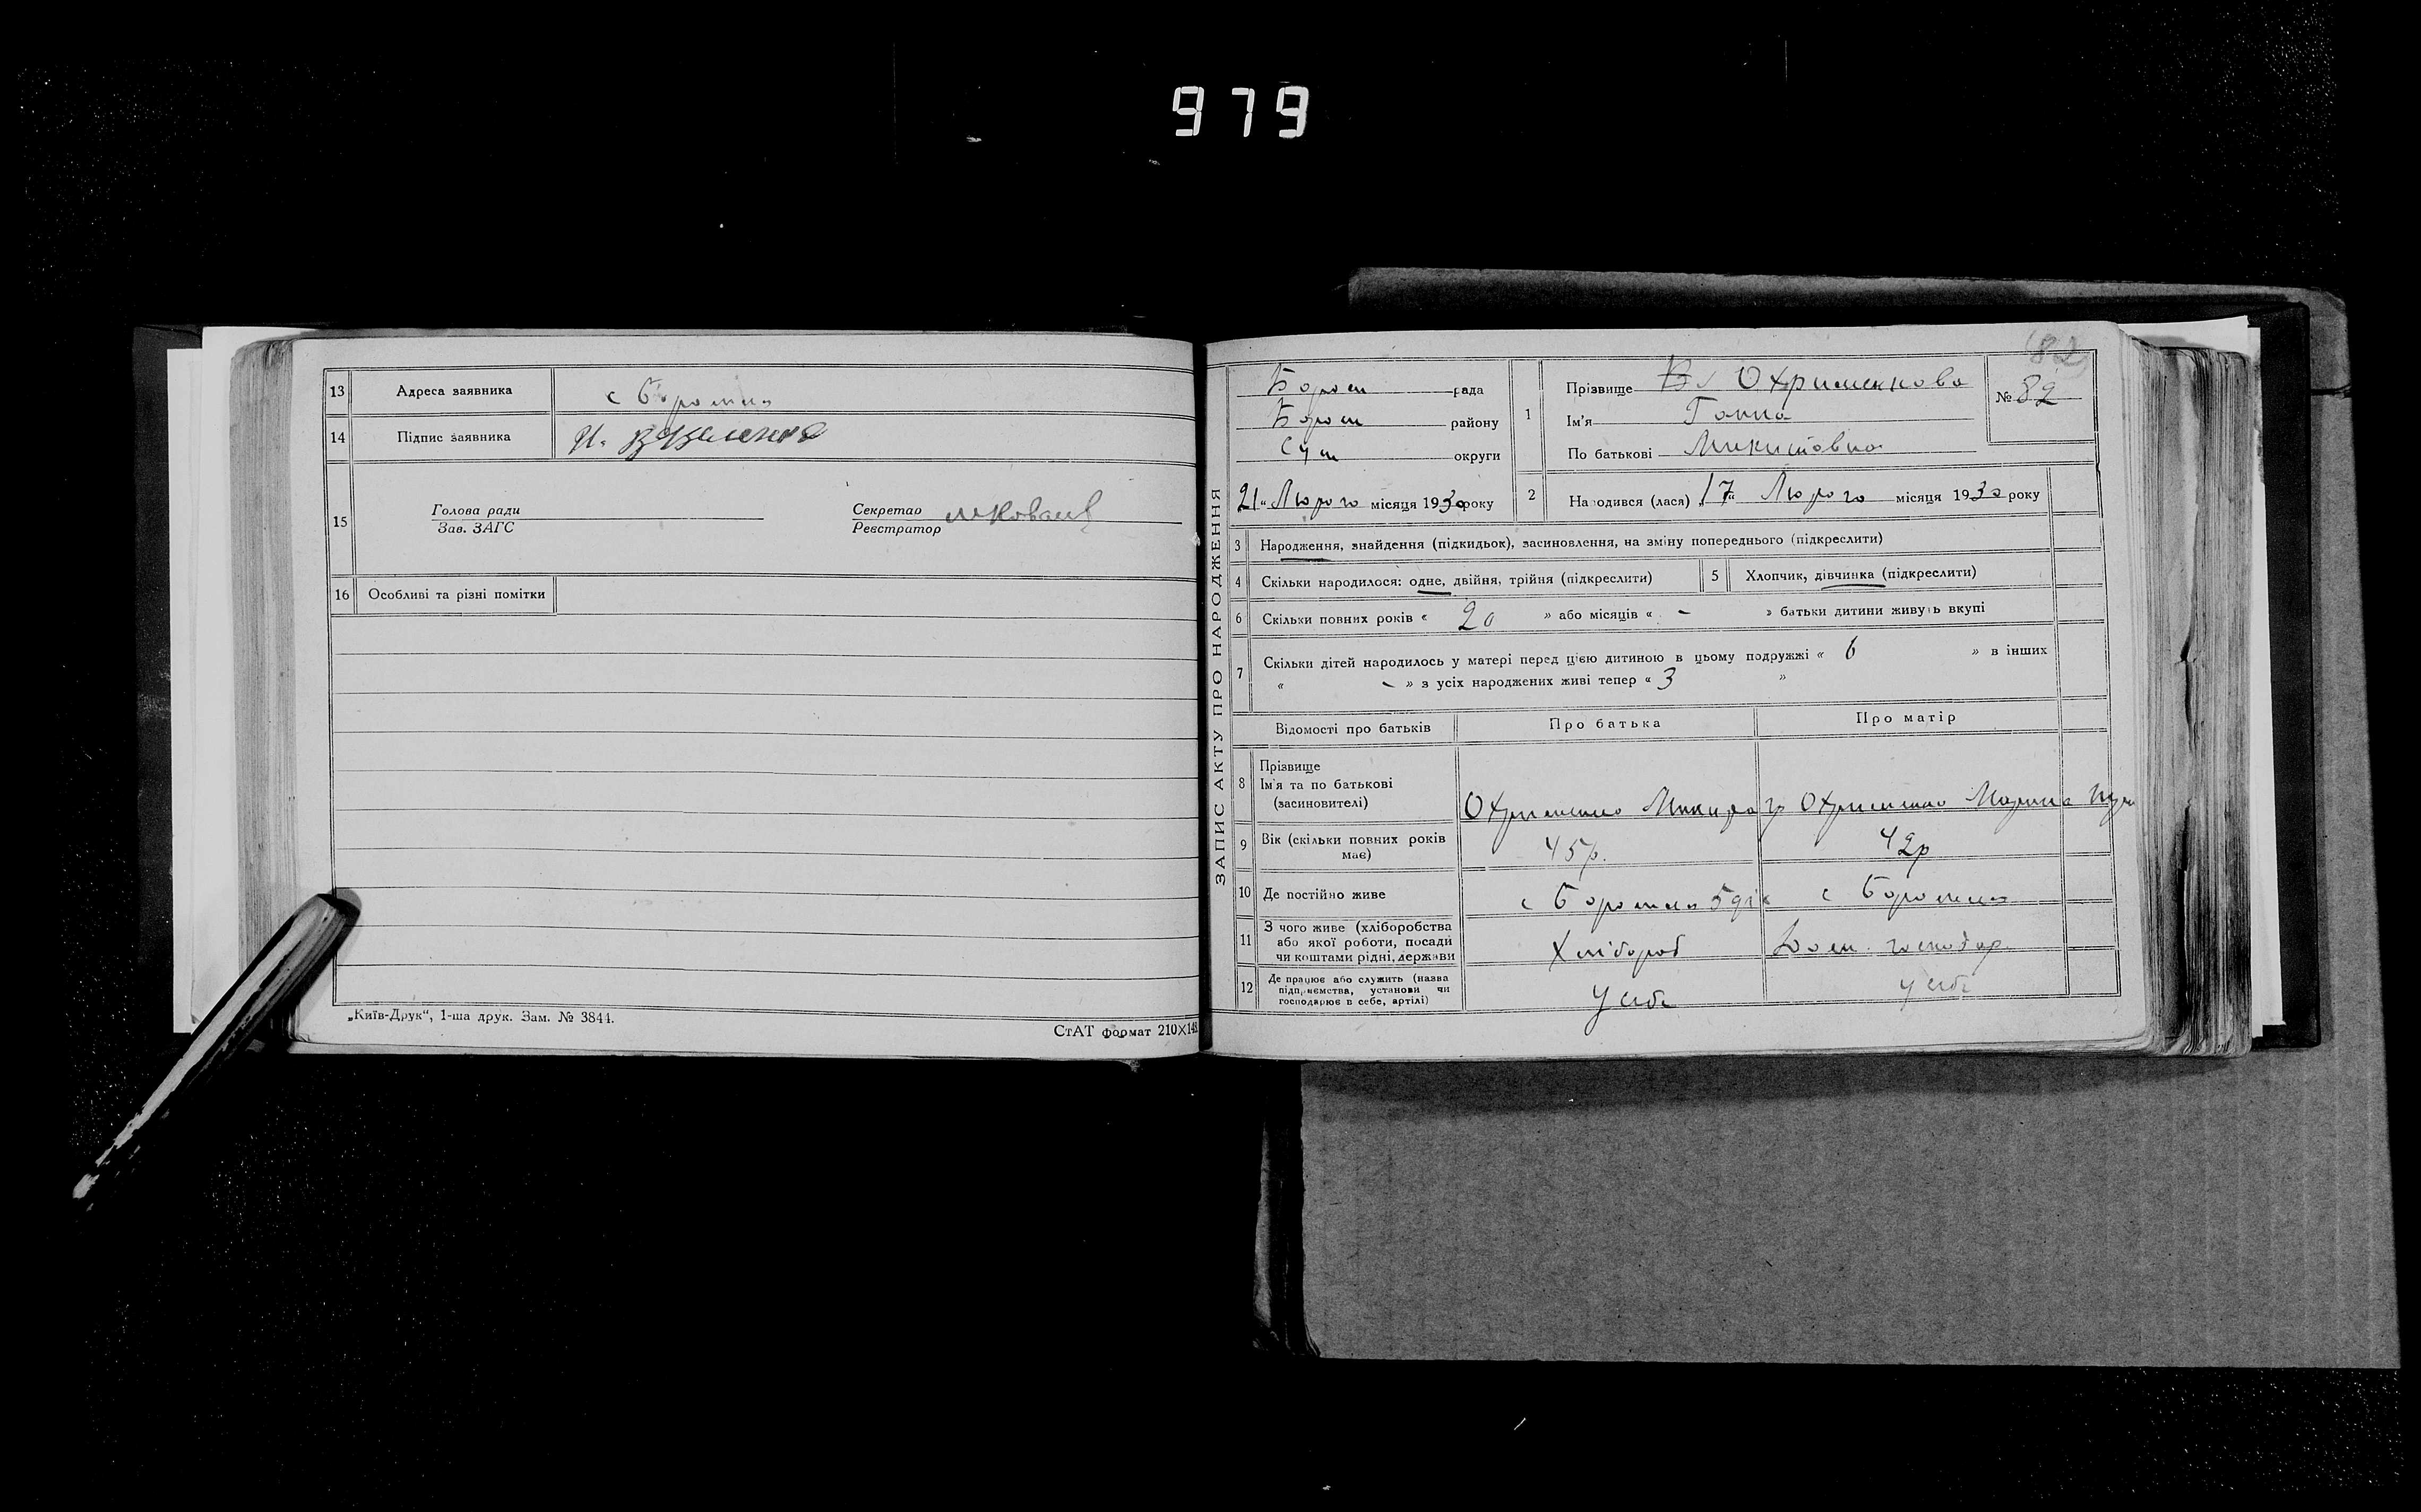 979
13 Адреса заявника с Боромля
14 Підпис заявника
15 Голова ради
Зав. ЗАГС
Секретар
Реєстратор
16 Особливі та різні помітки
„Київ-Друк“, 1-ша друк. Зам. № 3844.
СтАТ формат 210×148
ЗАПИС АКТУ ПРО НАРОДЖЕННЯ
82
Бором рада
Бором району
Сум округи
21 „ Лютого місяця 1930 року
1 Прізвище Охрименкова
Ім'я Ганна
По батькові Микитовна
№ 82
2 Народився (лася) „ 17 “ Лютого місяця 1930 року
3 Народження, знайдення (підкидьок), засиновлення, на зміну попереднього (підкреслити)
4 Скільки народилося: одне, двійня, трійня (підкреслити)
5 Хлопчик, дівчинка (підкреслити)
6 Скільки повних років « 20 » або місяців « - » батьки дитини живуть вкупі
7 Скільки дітей народилось у матері перед цією дитиною в цьому подружжі « 6 » в інших
« - » з усіх народжених живі тепер « 3 »
Відомості про батьків Про батька Про матір
8 Прізвище
Ім'я та по батькові
(засиновителі)
Охрименко Микита Охрименко Марина
9 Вік (скільки повних років
має)
45р. 42р
10 Де постійно живе с Боромля с Боромля
11 З чого живе (хліборобства
або якої роботи, посади
чи коштами рідні, держави
Хлібороб Дом. господар.
12 Де працює або служить (назва
підприємства, установи чи
господарює в себе, артілі)
у себе у себе